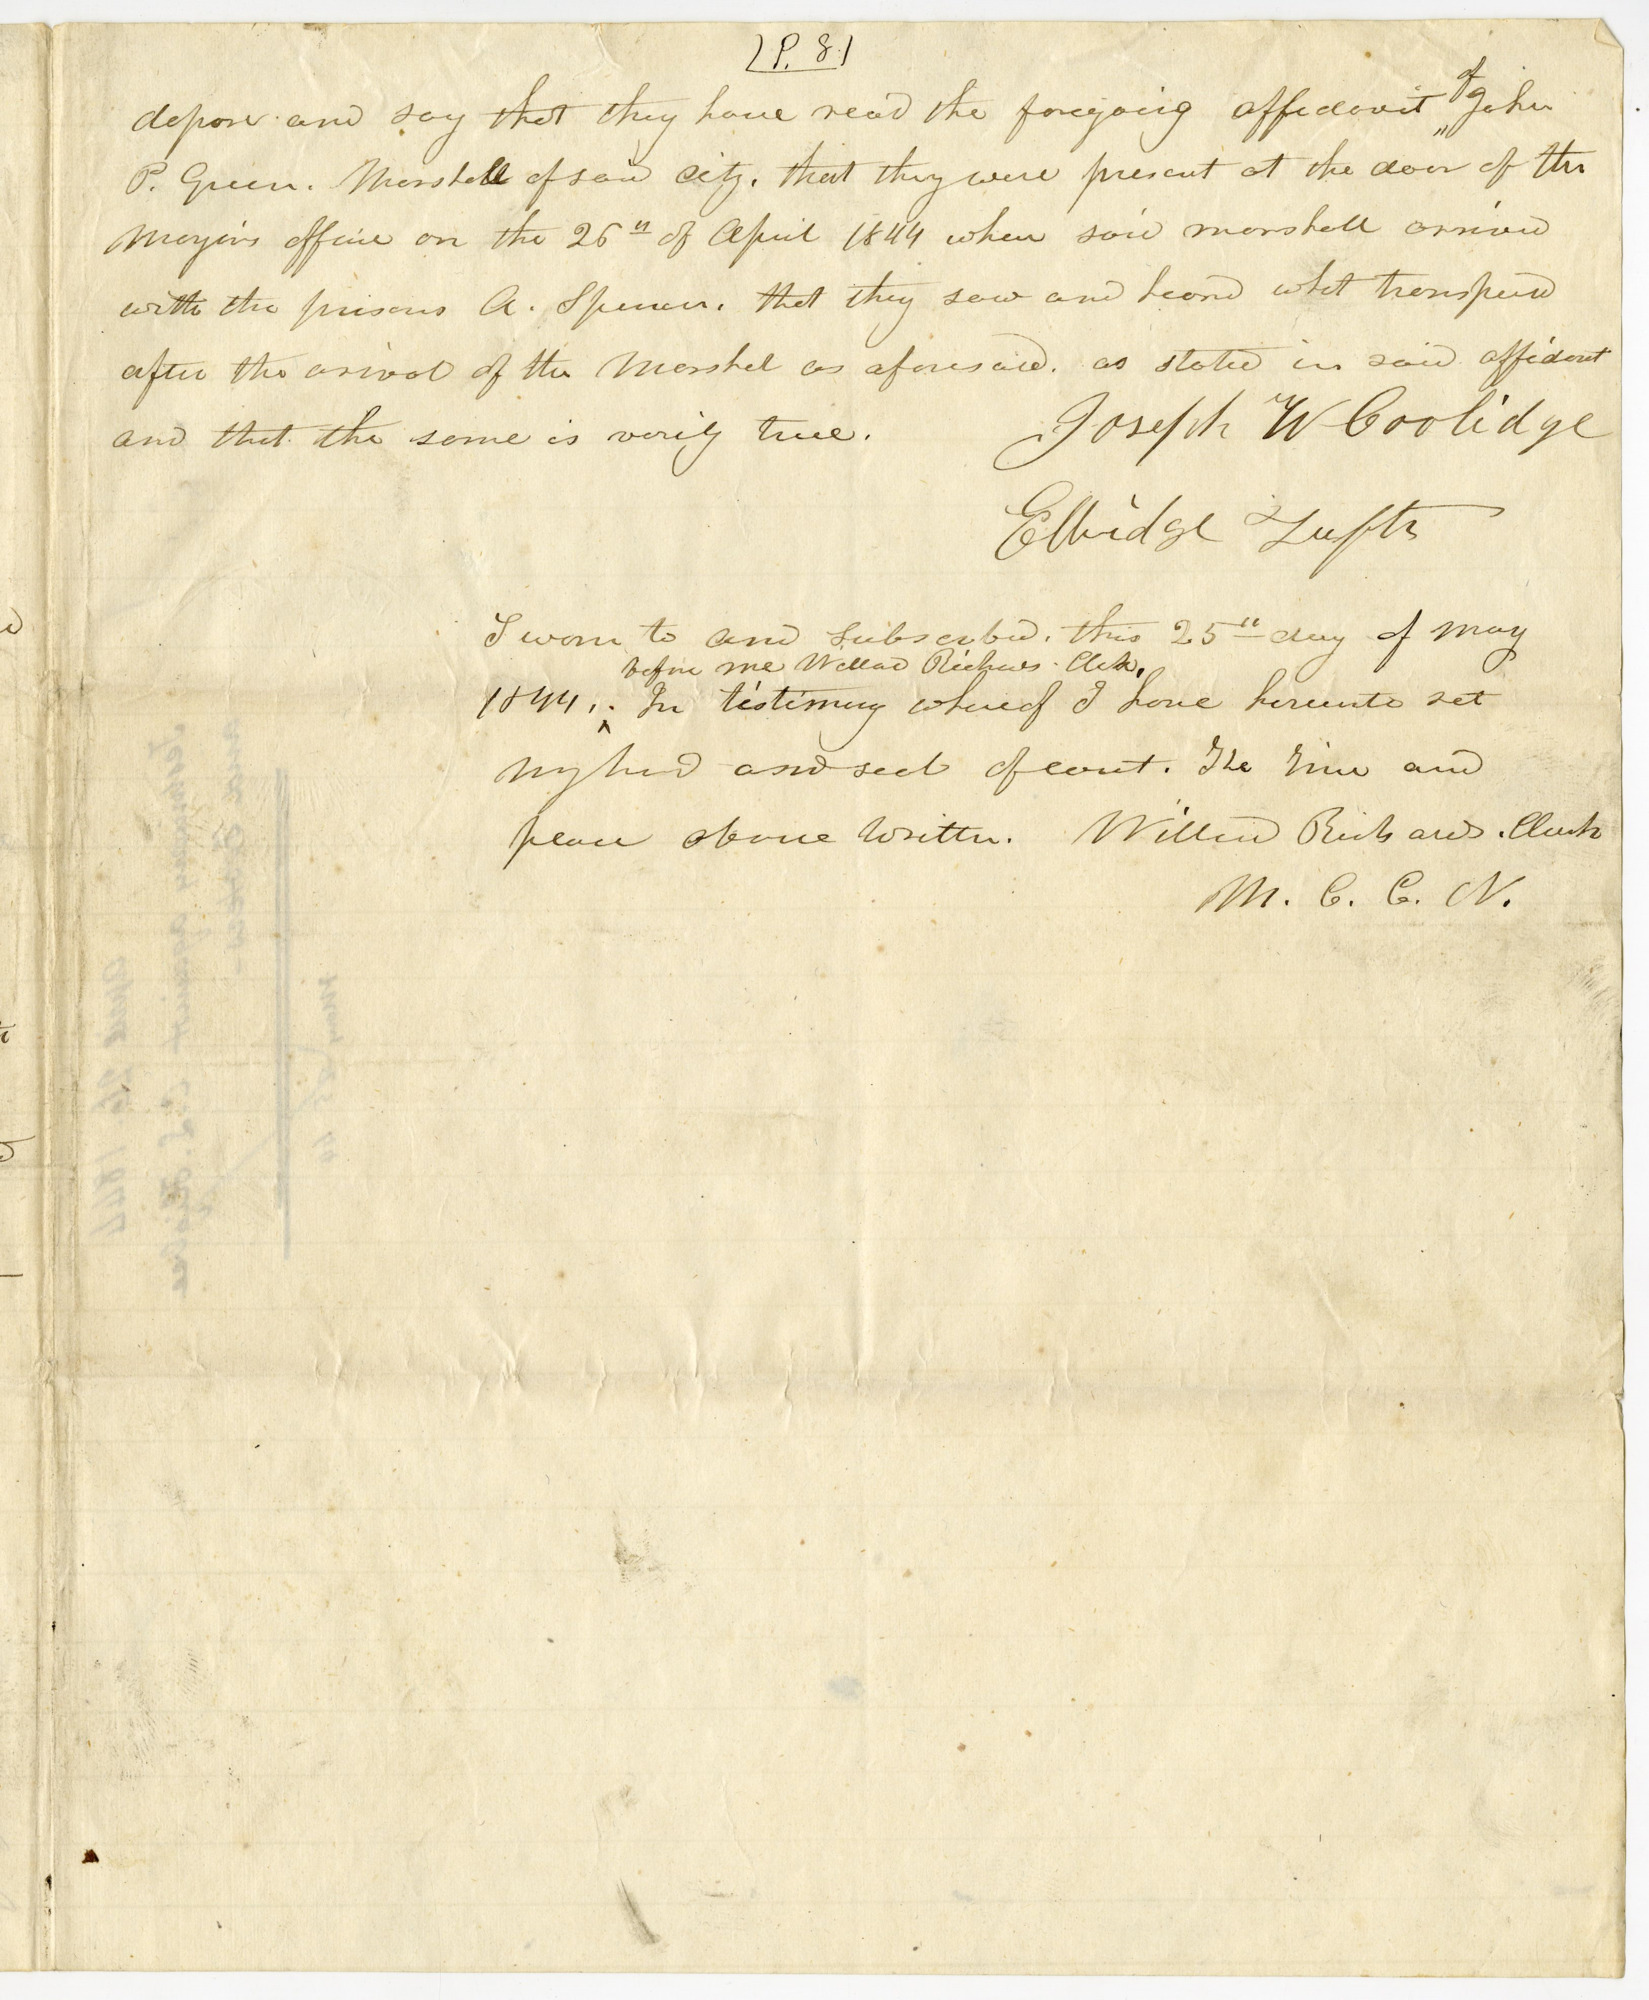 [P. 8]
depose and say that they have read the foregoing affidavit of John
P. Green. Marshall of said City. that they were present at the door of the
Mayors office on the 26th of April 1844 when said marshall arrived
with the prisons A. Spencer. that they saw and heard what transpired
after the arival of the Marshal as aforesaid. as stated in said affidavit
and that the same is verily true. Joseph W Coolidge
Elbridge Tufts
Sworn to and subscribed. this 25th day of May
before me Willard Richards. Clerk.
1844. In testimony whereof I have hereunto set
my hand and seal of court. The time and
place above written. Willard Richards. Clerk
M. C. C. N.